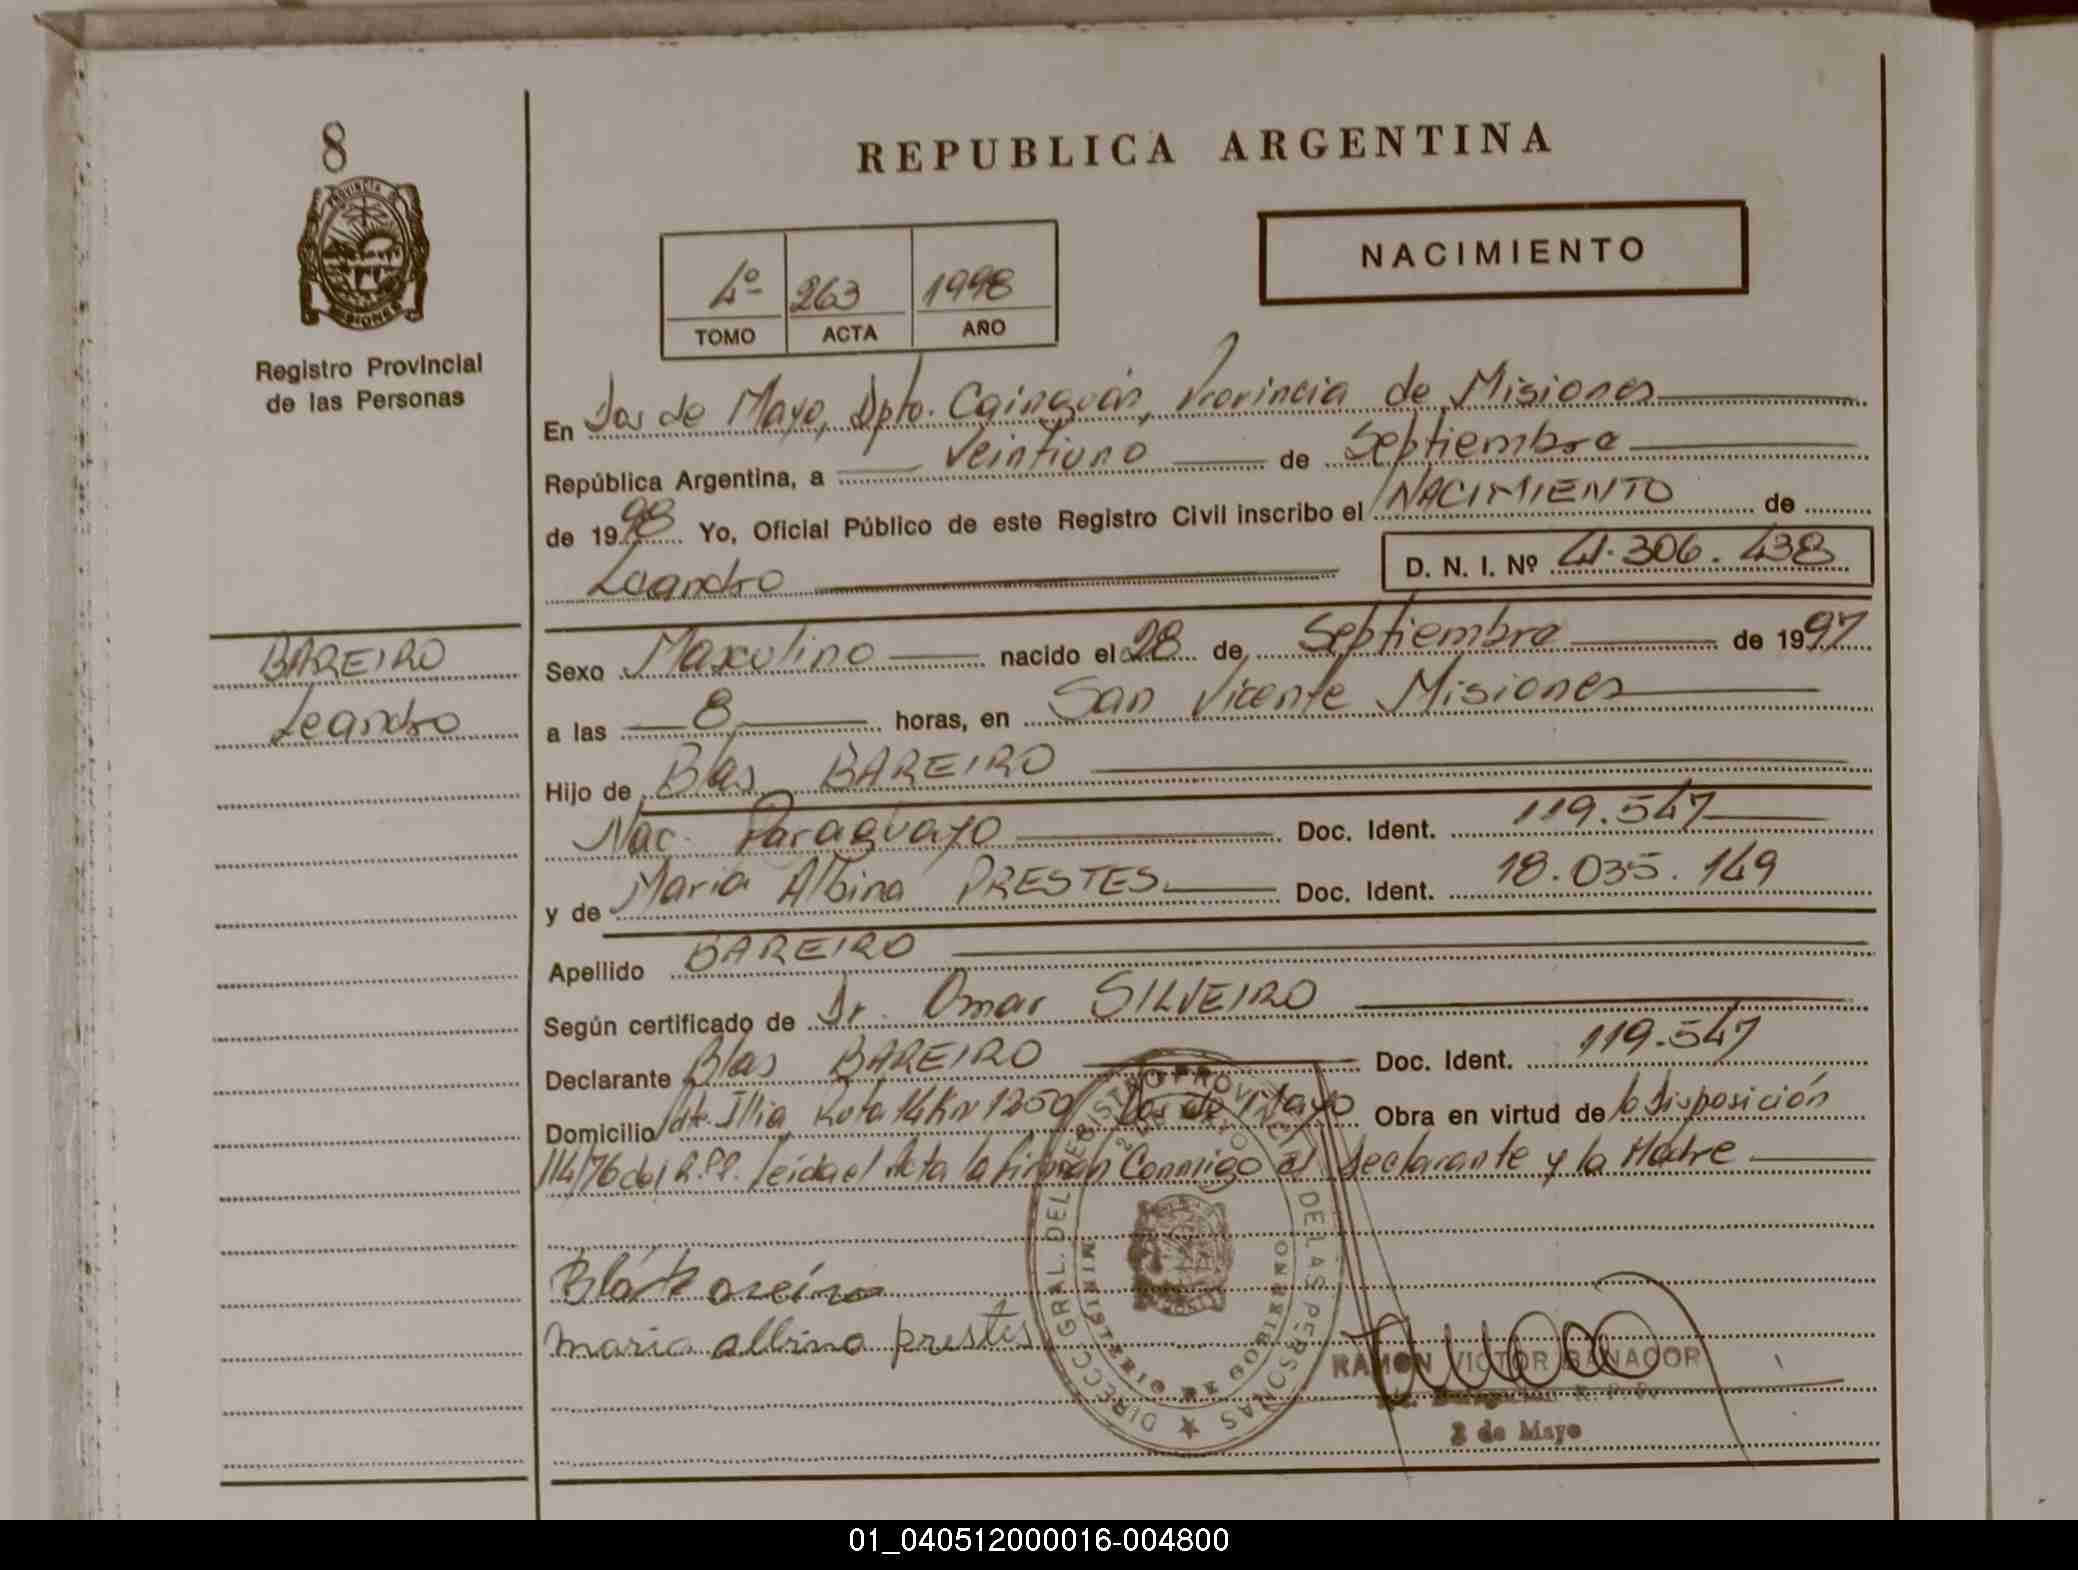 8
Registro Provincial
de las Personas
BAREIRO
Leandro
REPUBLICA ARGENTINA
4º 263 1998
TOMO ACTA AÑO
NACIMIENTO
En Dos de Mayo, Dpto. Cainguás, Provincia de Misiones
República Argentina, a Veintiuno de Septiembre
de 1998 Yo, Oficial Público de este Registro Civil inscribo el NACIMIENTO de
Leandro D. N. I. Nº 41.306.438
Sexo Masculino nacido el 28 de Septiembre de 1997
a las 8 horas, en San Vicente Misiones
Hijo de Blas BAREIRO
Nac. Paraguayo Doc. Ident. 119.547
y de Maria Albina PRESTES Doc. Ident. 18.035.149
Apellido BAREIRO
Según certificado de Dr. Omar SILVEIRO
Declarante Blas BAREIRO Doc. Ident. 119.547
Domicilio Illia Ruta 14 Km 1250 Dos de Mayo Obra en virtud de la Disposición
114/76 del R.P.P. leida el Acta la firman Conmigo el Declarante y la Madre
maria albina prestes
DIRECC. GRAL. DEL REGISTRO PROVINCIAL DE LAS PERSONAS
MINISTERIO DE GOBIERNO
RAMON VICTOR BANACOR
R. P. P.
2 de Mayo
01_040512000016-004800